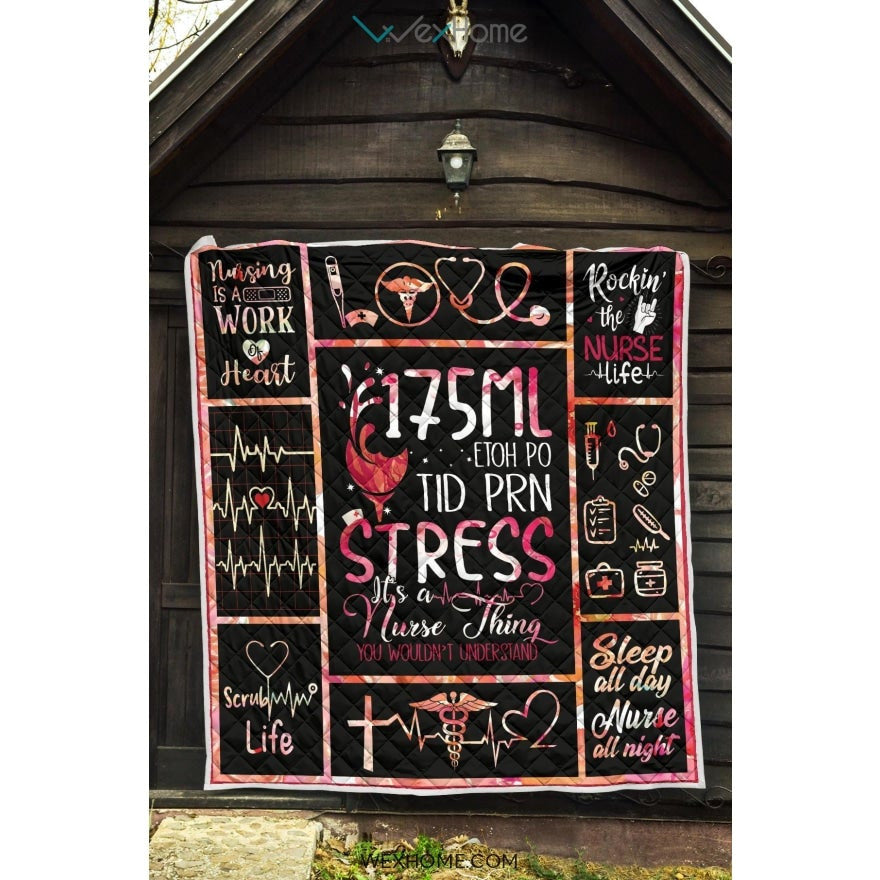 WexHome
Nursing
IS A
WORK
Of
Heart
Rockin'
the
NURSE
Life
175ML
ETOH PO
TID PRN
STRESS
It's a
Nurse Thing
YOU WOULDN'T UNDERSTAND
Scrub
Life
Sleep
all day
Nurse
all night
WEXHOME.COM